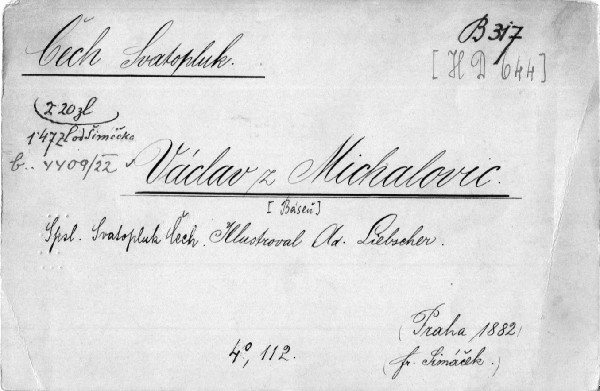 Čech Svatopluk.
B 317
[HD 644]
2·20 zl
1·47 zl od Šimáčka
4409/22
Václav z Michalovic.
[Báseň]
Spsl. Svatopluk Čech. Illustroval Ad. Liebscher.
Praha, 1882.
4°, 112.
(fr. Šimáček.)